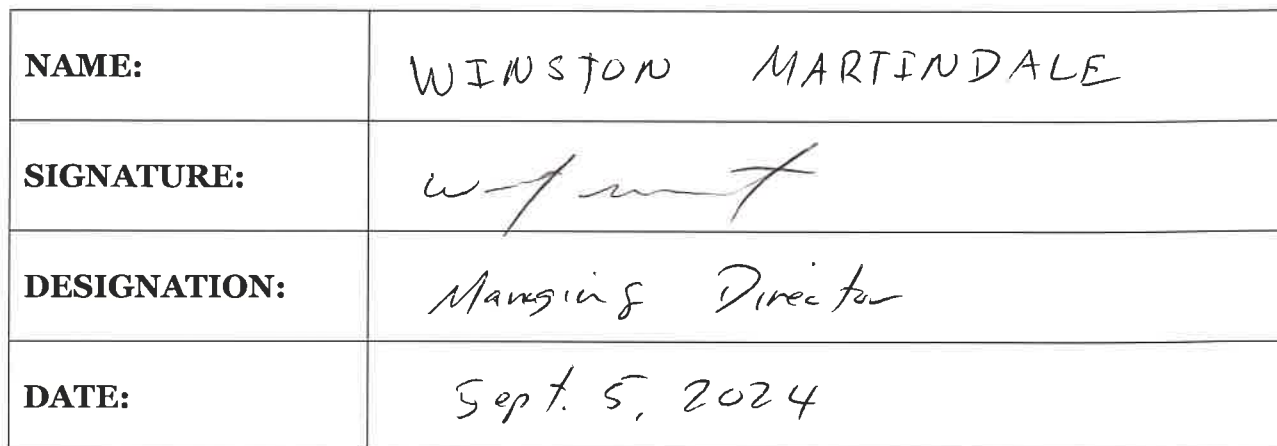 NAME: WINSTON MARTINDALE
SIGNATURE:
DESIGNATION: Managing Director
DATE: Sept. 5, 2024